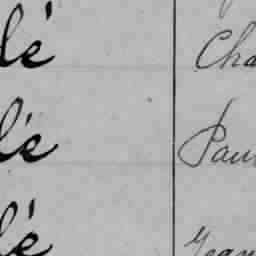 lé Cha
lé Pau
lé Jean